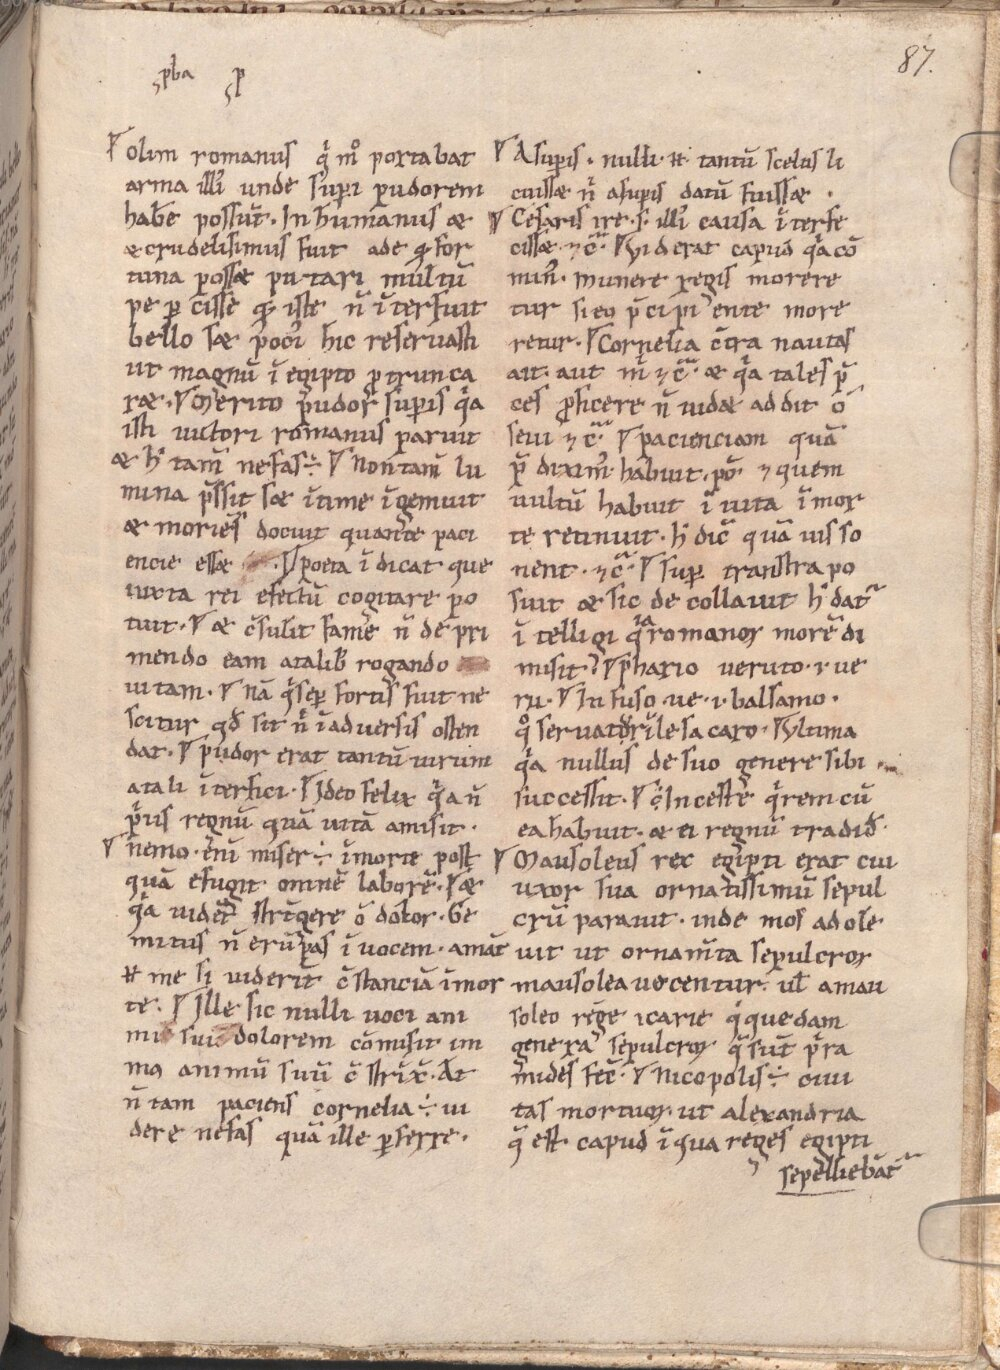 87.
ꝓba ꝓ
olim romanus q̄ m° portabat
arma illi᷑ unde suꝑi pudorem
hab̄e possūt. In humanus æ
æ crudelisimus fuit ade ꝙ for
tuna possæ putari multū
pe ꝑ cissē ꝙ iste n̄ ī terfuit
bello sæ poci᷑ hic reservasti
ut magnū ī egipto ꝓ trunca
ræ. Merito pudor suꝑis q̄a
isti victori romanus paruit
æ h° tam̄ nefas ÷ Non tam̄ lu
mina p̄ssit sæ ītime īgemuit
æ moriēs docuit quante paci
encie essæ . poeta ī dicat que
iuxta rei efectū cogitare po
tuit. æ c̄sulit famē n̄ de pri
mendo eam a talib᷑ rogando
uitam. Nā q̄ seꝑ fortis fuit ne
scitur qđ sit n̄ īadversis osten
dat. pudor erat tantū uirum
a tali īterfici. Ideo felix q̄a n̄
p̄us regnū quā uitā amisit.
nemo. enī miser ÷ īmorte post
quā efugit omnē laborē. æ
q̄a uidet᷑ strīgere ō dolor. Ge
mitus n̄ erūpas ī vocem. amāt
me si viderīt c̄stanciā īmor
te. Ille sic nulli voci ani
mi sui dolorem cōmisit im
mo animū suū c̄ strīx̄. At
n̄ tam paciens cornelia ÷ ui
dere nefas quā ille ꝑferre.
A suꝑis. nulli. tantū scelus li
cuissæ n̄ a suꝑis datū fuissæ.
Cesaris ire. s. illi᷑ causa īterfe
cissæ. ⁊c̄. Viderat capud q̄a cō
mun̄. munere regis morere
tur si eo p̄cipi ente more
retur. Cornelia c̄tra nautas
ait. aut m̄ ⁊c̄. æ q̄a tales p̄
ces ꝓficere n̄ uidæ addit ō
sevi ⁊c̄. pacienciam quā
p̄ dixim᷑ habuit. po᷑ ⁊ quem
uultū habuit ī uita ī mor
te retinuit. h° dic̄ quā vis so
nent. ⁊c̄. suꝑ transtra po
suit æ sic de collavit h° dat᷑
ī telligi q̄a romanoꝝ morē di
misit? Phario veruto. i. ve
ru. In fuso. ve. i. balsamo.
q° servat᷑ ī le sa caro. Ultima
q̄a nullus de suo genere sibi
successit. q̄ Incestē q̄ rem cū
ea habuit. æ ei regnū tradiđ.
Mausoleus rex egipti erat cui
uxor sua ornatissimū sepul
crū paravit. inde mos adole
vit ut ornam̄ta sepulcroꝝ
mausolea vocentur. ul̄ a mau
soleo rege icarie q̄ quedam
genera sepulcroꝝ q̄ sūt p̄ra
mides fec̄. Nicopolis ÷ civi
tas mortuoꝝ. ut alexandria
q̄ est capud ī qua reges egipti
sepelliebāt᷑